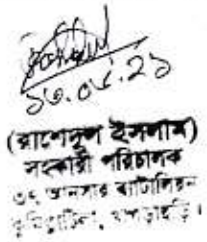 ১৬.০৮.২১
(রাশেদুল ইসলাম)
সহকারী পরিচালক
৩৬ আনসার ব্যাটালিয়ন
খাগড়াছড়ি।